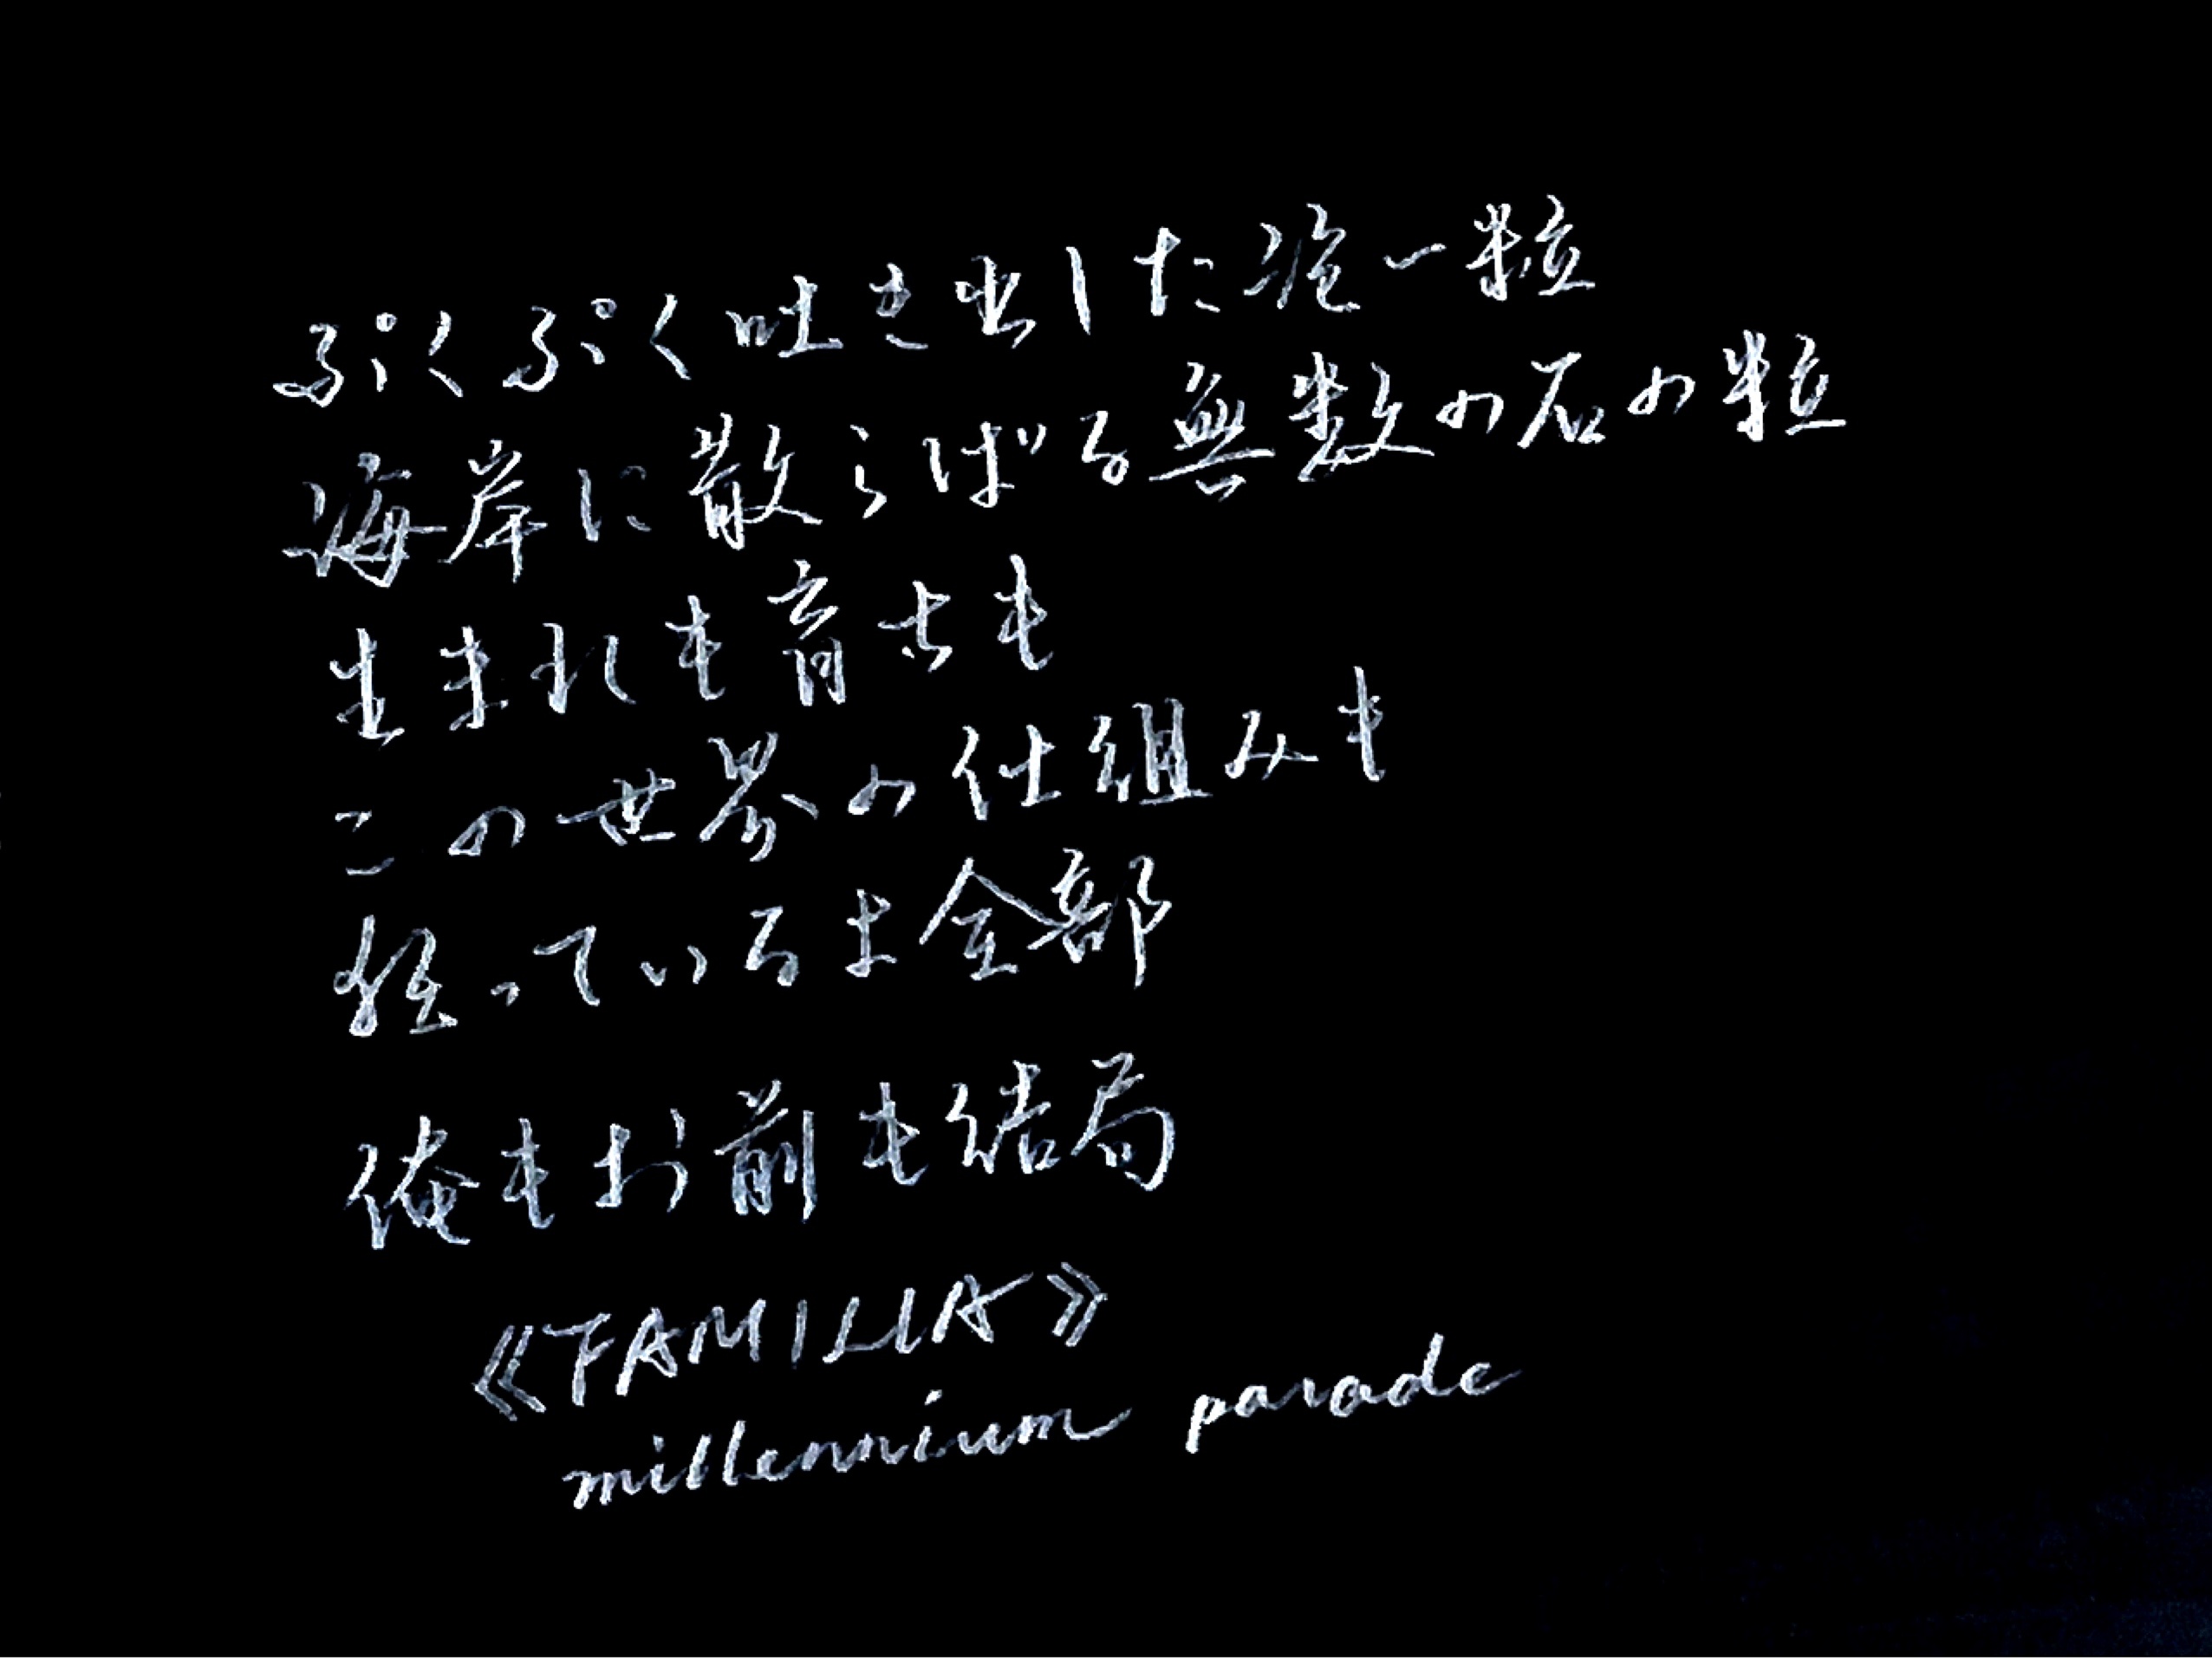 ぷくぷく吐き出した泡一粒
海岸に散らばる無数の石の粒
生まれも育ちも
この世界の仕組みも
狂っているよ全部
俺もお前も結局
《FAMILIA》
millennium parade